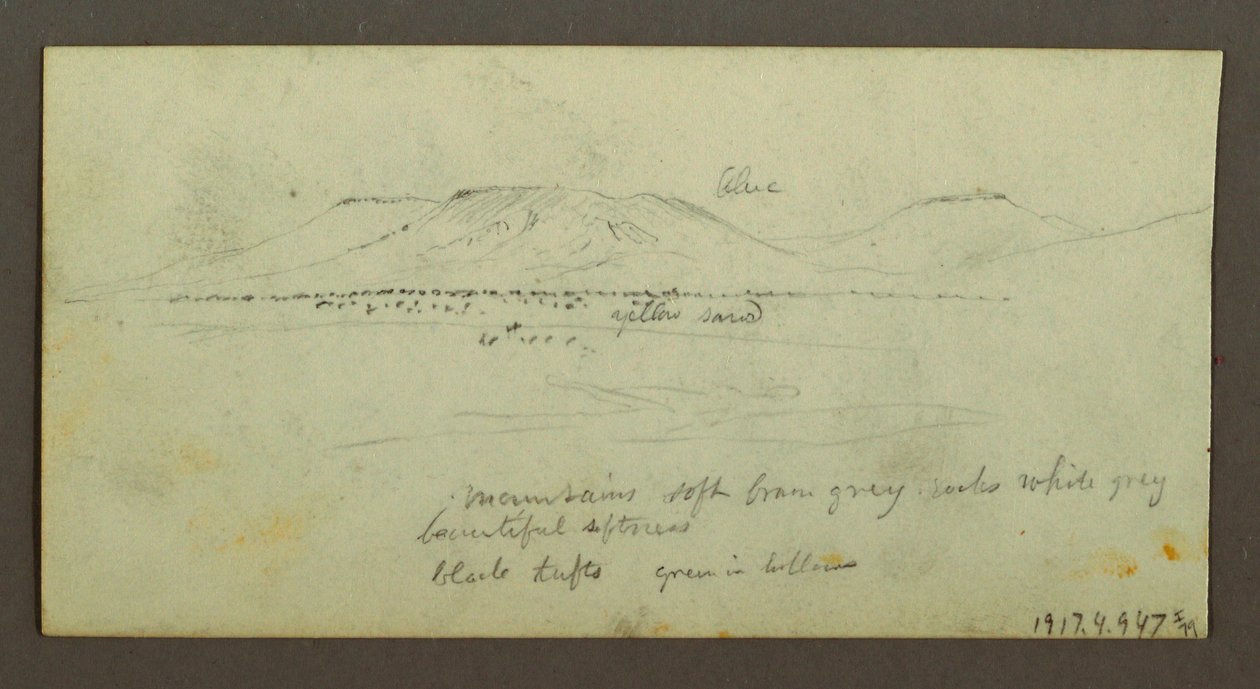 blue
yellow sand
mountains soft brown grey rocks white grey
beautiful softness
black tufts green in hollows
1917.4.947 I/79